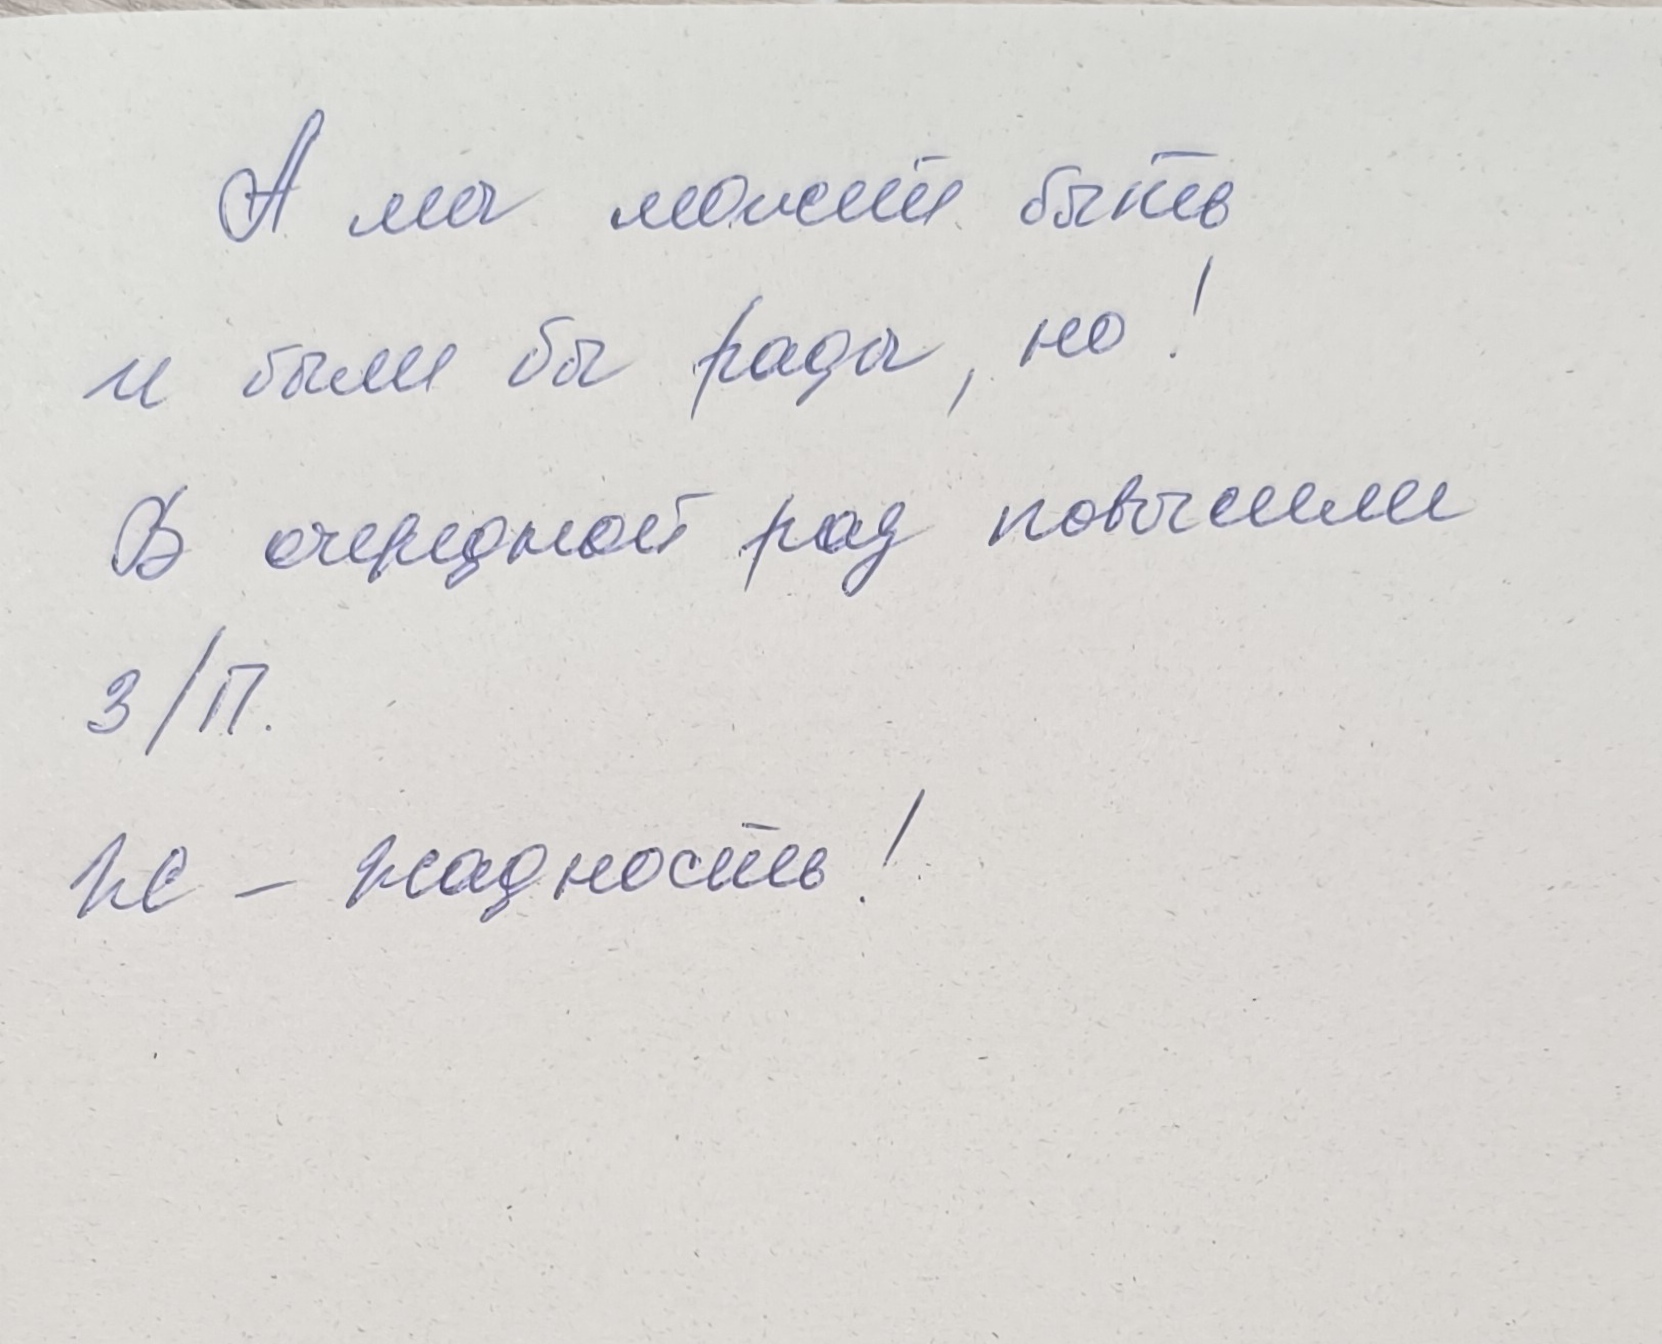 А мы может быть
и были бы рады, но!
В очередной раз повысили
З/П.
Же - жадность!